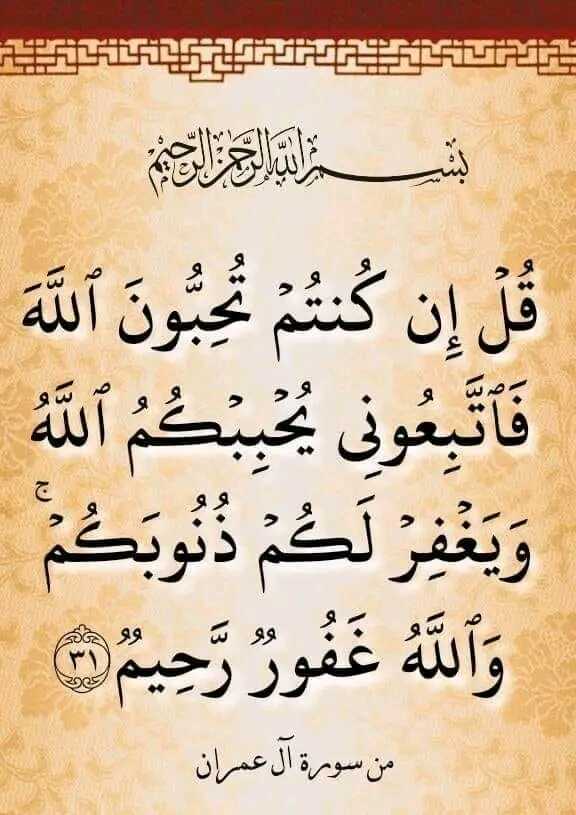 بسم الله الرحمن الرحيم
قُلْ إِن كُنتُمْ تُحِبُّونَ ٱللَّهَ
فَٱتَّبِعُونِى يُحْبِبْكُمُ ٱللَّهُ
وَيَغْفِرْ لَكُمْ ذُنُوبَكُمْ ۚ
وَٱللَّهُ غَفُورٌ رَّحِيمٌ ٣١
من سورة آل عمران